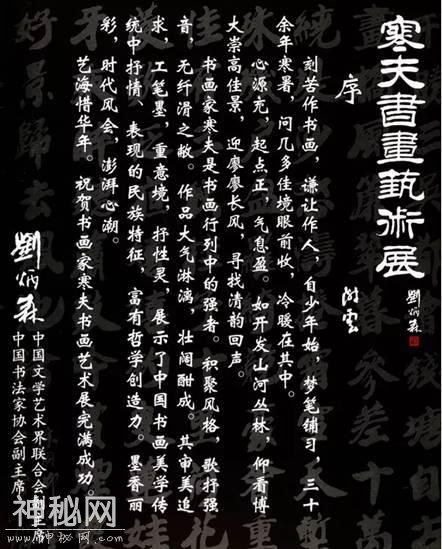 寒夫書畫藝術展
劉炳森
序
刻苦作书画，谦让作人，自少年始，梦笔铺习，三十
余年寒暑，问几多佳境眼前收，冷暖在其中。
心源充，起点正，气息盈。如开发山河丛林，仰看博
大崇高佳景，迎廖廖长风，寻找清韵回声。
书画家寒夫是书画行列中的强者。积聚风格，歌抒强
音，无纤滑之敝。作品大气淋漓，壮阔酣成。其审美追
求，工笔墨，重意境，抒性灵，展示了中国书画美学传
统中抒情、表现的民族特征，富有哲学创造力。墨香丽
彩，时代风会，澎湃心潮。
艺海惜华年。祝贺书画家寒夫书画艺术展完满成功。
劉炳森
中国文学艺术界联合会副主席
中国书法家协会副主席
神秘网
www.shenmi.com.cn